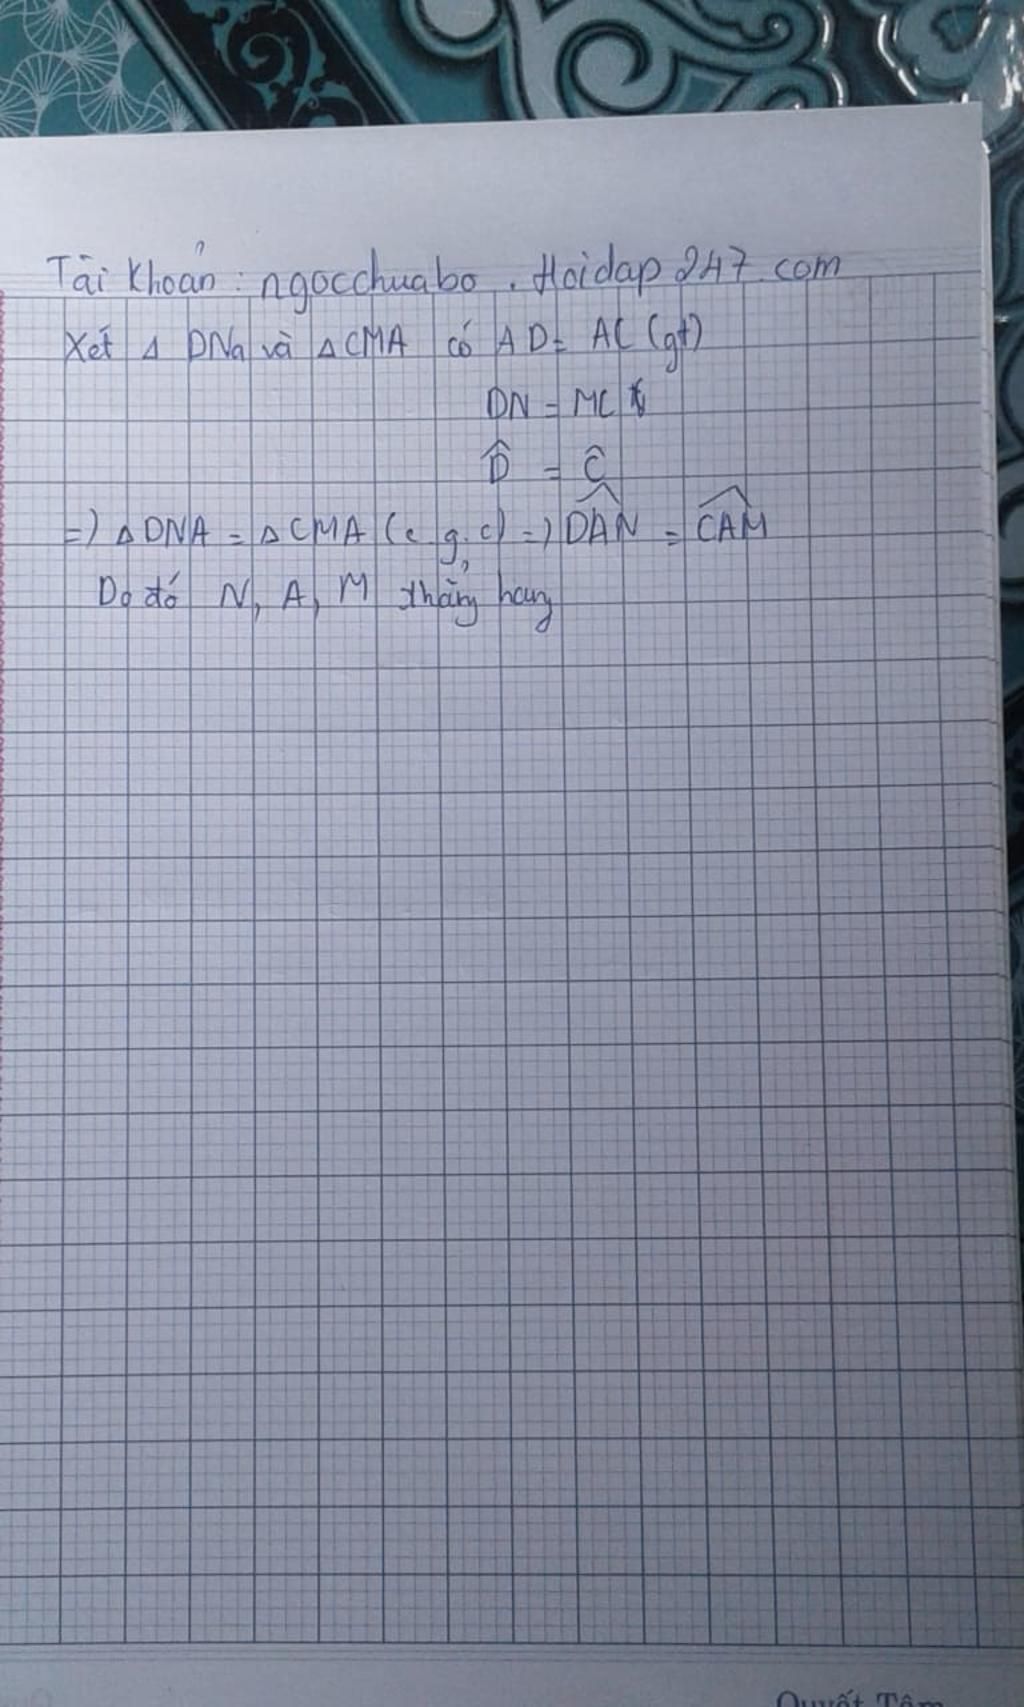 Tài Khoản : ngocchuabo . Hoidap247.com
Xét Δ DNa và ΔCMA có AD = AC (gt)
DN = MC
D̂ = Ĉ
=) ΔDNA = ΔCMA (c.g.c) =) D̂AN = ĈAM
Do đó N, A, M thẳng hang
Quyết Tâm